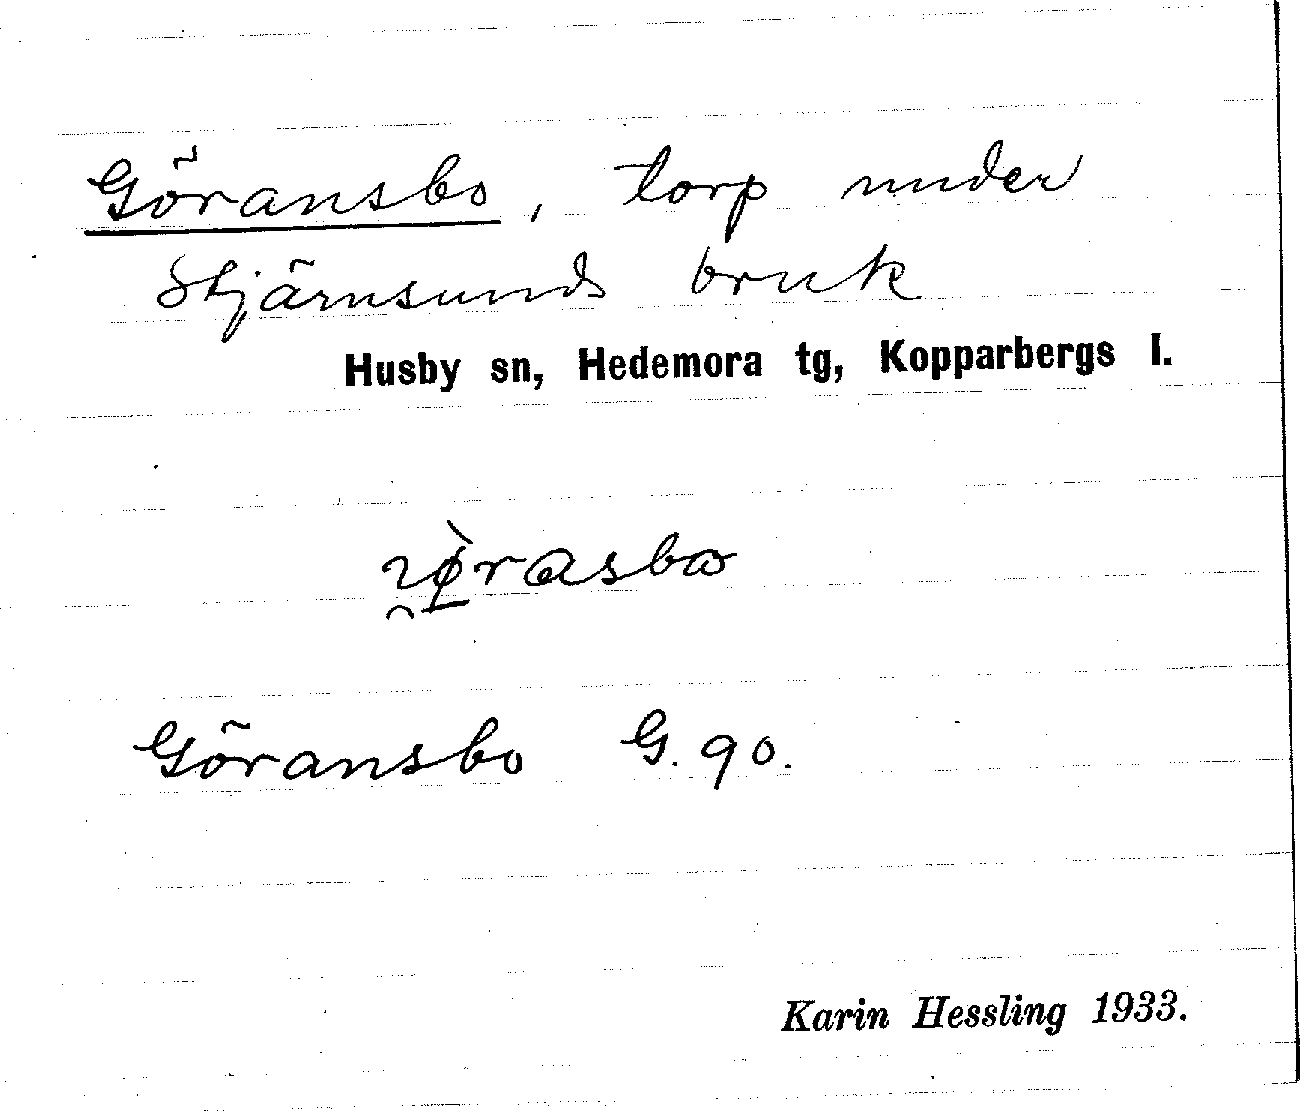 Göransbo, torp under
Stjärnsunds bruk
Husby sn, Hedemora tg, Kopparbergs l.
Göransbo G. 90.
Karin Hessling 1933.